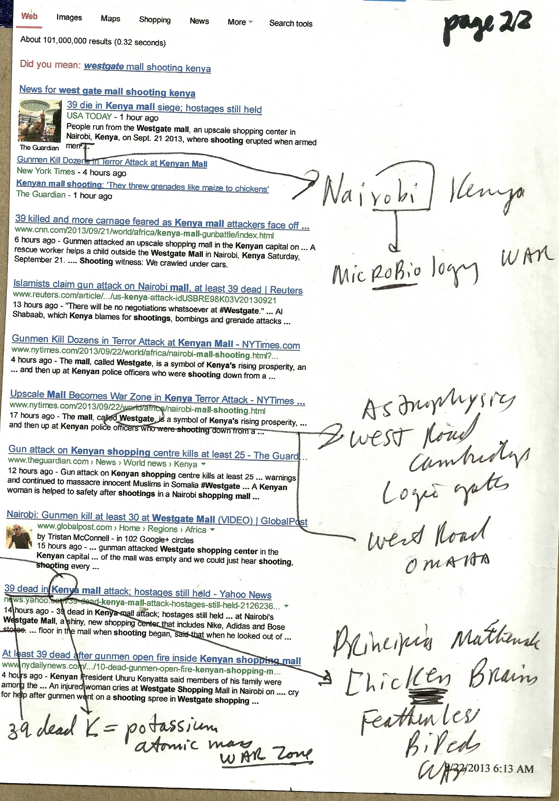 page 2/2
Web Images Maps Shopping News More Search tools
About 101,000,000 results (0.32 seconds)
Did you mean: westgate mall shooting kenya
News for west gate mall shooting kenya
39 die in Kenya mall siege; hostages still held
USA TODAY - 1 hour ago
People run from the Westgate mall, an upscale shopping center in
Nairobi, Kenya, on Sept. 21 2013, where shooting erupted when armed
men ...
The Guardian
Gunmen Kill Dozens in Terror Attack at Kenyan Mall
New York Times - 4 hours ago
Kenyan mall shooting: 'They threw grenades like maize to chickens'
The Guardian - 1 hour ago
Nairobi Kenya
39 killed and more carnage feared as Kenya mall attackers face off ...
www.cnn.com/2013/09/21/world/africa/kenya-mall-gunbattle/index.html
6 hours ago - Gunmen attacked an upscale shopping mall in the Kenyan capital on ... A
rescue worker helps a child outside the Westgate Mall in Nairobi, Kenya Saturday,
September 21. .... Shooting witness: We crawled under cars.
MicroBiology WAR
Islamists claim gun attack on Nairobi mall, at least 39 dead | Reuters
www.reuters.com/article/.../us-kenya-attack-idUSBRE98K03V20130921
13 hours ago - "There will be no negotiations whatsoever at #Westgate." ... Al
Shabaab, which Kenya blames for shootings, bombings and grenade attacks ...
Gunmen Kill Dozens in Terror Attack at Kenyan Mall - NYTimes.com
www.nytimes.com/2013/09/22/world/africa/nairobi-mall-shooting.html?...
4 hours ago - The mall, called Westgate, is a symbol of Kenya's rising prosperity, an
... and then up at Kenyan police officers who were shooting down from a ...
Upscale Mall Becomes War Zone in Kenya Terror Attack - NYTimes ...
www.nytimes.com/2013/09/22/world/africa/nairobi-mall-shooting.html
17 hours ago - The mall, called Westgate, is a symbol of Kenya's rising prosperity, ...
and then up at Kenyan police officers who were shooting down from a ...
Astrophysics
West Road
Cambridge
Logic gates
Gun attack on Kenyan shopping centre kills at least 25 - The Guard...
www.theguardian.com › News › World news › Kenya
12 hours ago - Gun attack on Kenyan shopping centre kills at least 25 ... warnings
and continued to massacre innocent Muslims in Somalia #Westgate ... A Kenyan
woman is helped to safety after shootings in a Nairobi shopping mall ...
West Road
OMAHA
Nairobi: Gunmen kill at least 30 at Westgate Mall (VIDEO) | GlobalPost
www.globalpost.com › Home › Regions › Africa
by Tristan McConnell - in 102 Google+ circles
15 hours ago - ... gunman attacked Westgate shopping center in the
Kenyan capital ... of the mall was empty and we could just hear shooting,
shooting every ...
39 dead in Kenya mall attack; hostages still held - Yahoo News
news.yahoo.com/39-dead-kenya-mall-attack-hostages-still-held-2126236...
14 hours ago - 39 dead in Kenya mall attack; hostages still held ... at Nairobi's
Westgate Mall, a shiny, new shopping center that includes Nike, Adidas and Bose
stores. ... floor in the mall when shooting began, said that when he looked out of ...
At least 39 dead after gunmen open fire inside Kenyan shopping mall
www.nydailynews.com/.../10-dead-gunmen-open-fire-kenyan-shopping-m...
4 hours ago - Kenyan President Uhuru Kenyatta said members of his family were
among the ... An injured woman cries at Westgate Shopping Mall in Nairobi on .... cry
for help after gunmen went on a shooting spree in Westgate shopping ...
Principia
Chicken Brains
Featherless
BiPeds
WAR
39 dead K = potassium
atomic mass
WAR ZONE
9/22/2013 6:13 AM